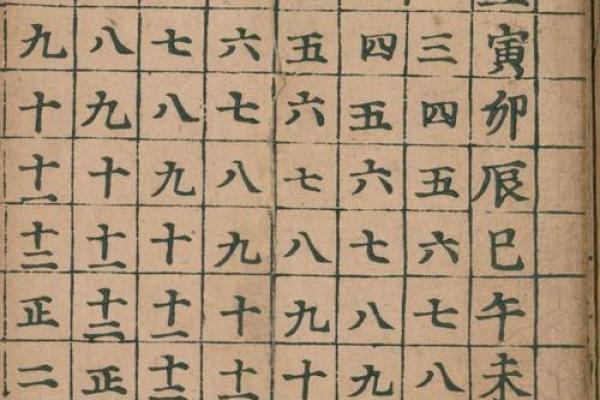 寅卯辰巳午未
三四五六七八
四五六七八九
五六七八九十
六七八九十十一
七八九十十一十二
八九十十一十二正
九十十一十二正二